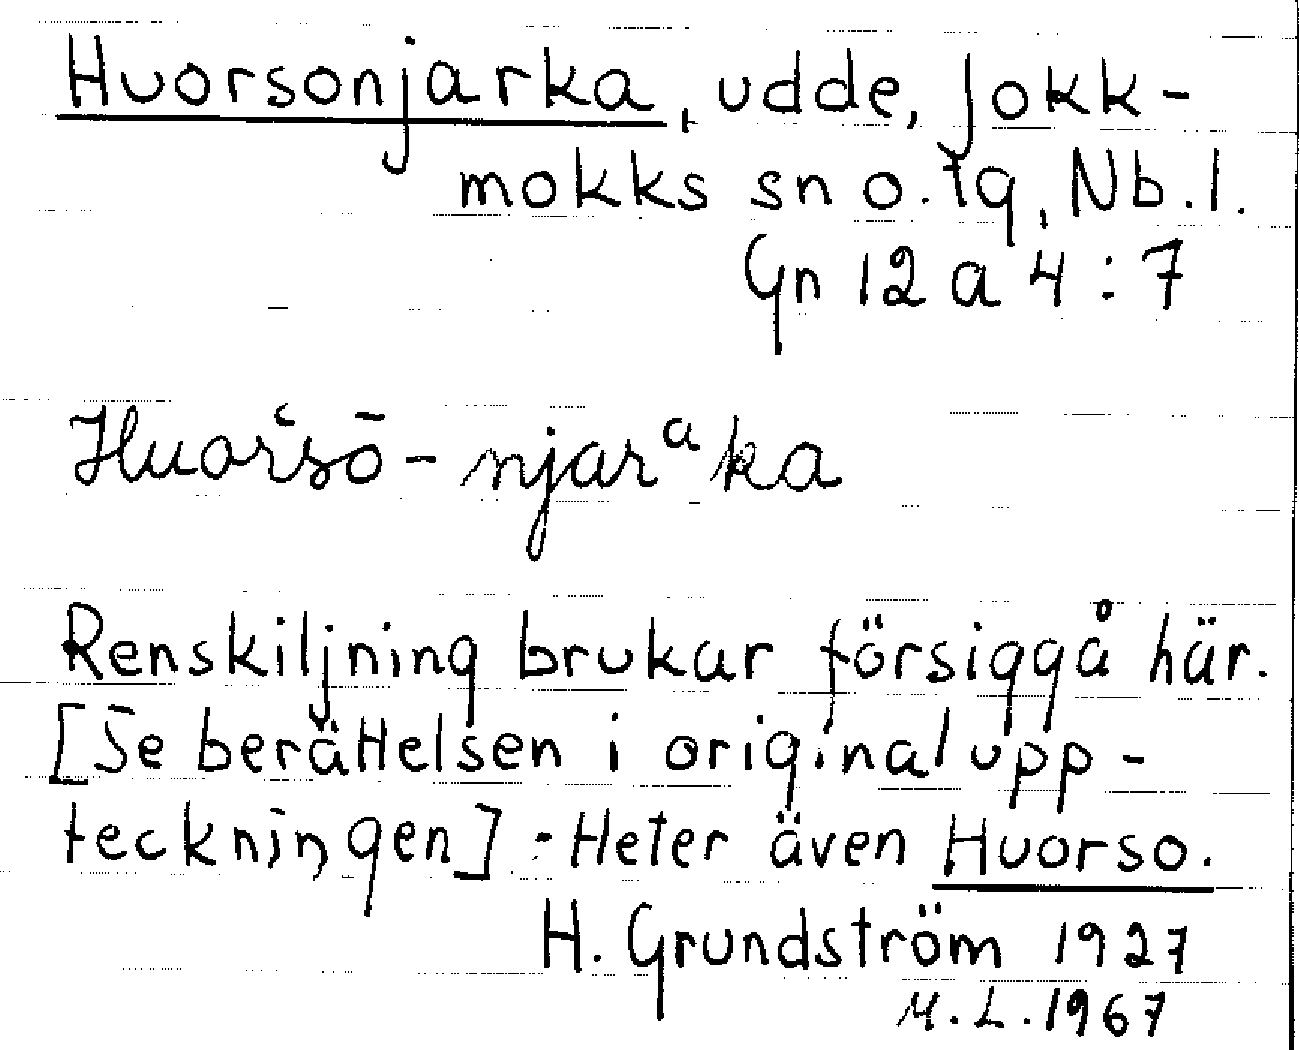 Huorsonjarka, udde, Jokk-
mokks sn o. tg, Nb. l.
Gn 12 a 4:7
Huor̔sō-njarᵃka
Renskiljning brukar försiggå här.
[Se berättelsen i originalupp-
teckningen] - Heter även Huorso.
H. Grundström 1927
M.L. 1967